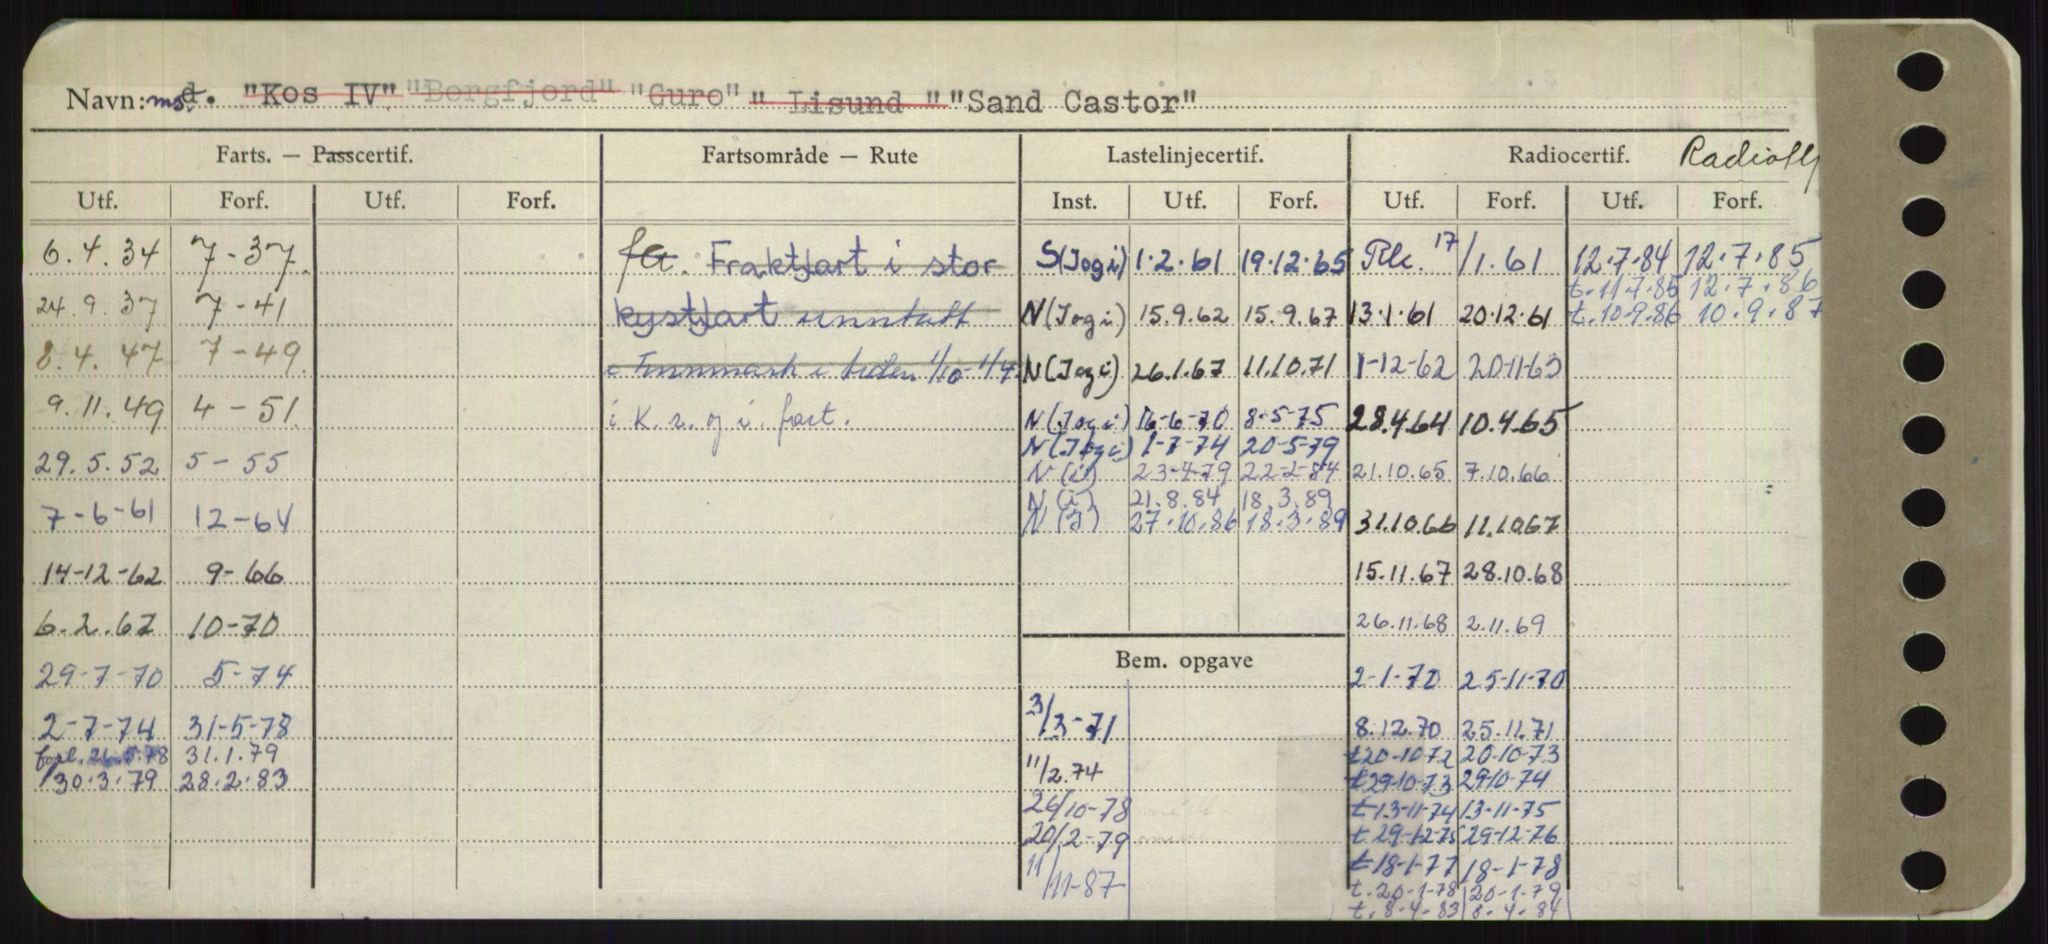 Navn: ms. "Kos IV" "Borgfjord" "Guro" " Lisund " "Sand Castor"
Farts. — Passcertif. Fartsområde — Rute Lastelinjecertif. Radiocertif.
Utf. Forf. Utf. Forf. Inst. Utf. Forf. Utf. Forf. Utf. Forf.
6.4.34 7-37 Fraktfart i stor S(Jogi) 1.2.61 19.12.65 17/1.61 12.7.84 12.7.85
t.11.7.85 12.7.86
24.9.37 7-41 kystfart unntatt N(Jogi) 15.9.62 15.9.67 13.1.61 20.12.61 t.10.9.86 10.9.87
8.4.47 7-49 Finnmark i tiden 1/10-1/4 N(Jogi) 26.1.67 11.10.71 1-12-62 20-11-63
9.11.49 4-51 i K.r. og i. fart. N(Jogi) 16-6-70 8-5-75 28.4.64 10.4.65
N(Jogi) 1-7-74 20-5-79
29.5.52 5-55 N(i) 23-4-79 22-2-84 21.10.65 7.10.66
N(i) 21.8.84 18.3.89
7-6-61 12-64 27.10.86 18.3.89 31.10.66 11.10.67
14-12-62 9-66 15.11.67 28.10.68
6.2.67 10-70 26.11.68 2.11.69
Bem. opgave
29-7-70 5-74 2-1-70 25-11-70
2-7-74 31-5-78 3/3-71 8.12.70 25.11.71
forl. 26.5.78 31.1.79 t20-10-72 20-10-73
30.3.79 28.2.83 11/2.74 t29-10-73 29-10-74
26/10-78 t13-11-74 13-11-75
20/2-79 t29-12-75 29-12-76
11/11-87 t18-1-77 18-1-78
t.20-1-78 20-1-79
t.8.4.83 8.4.84